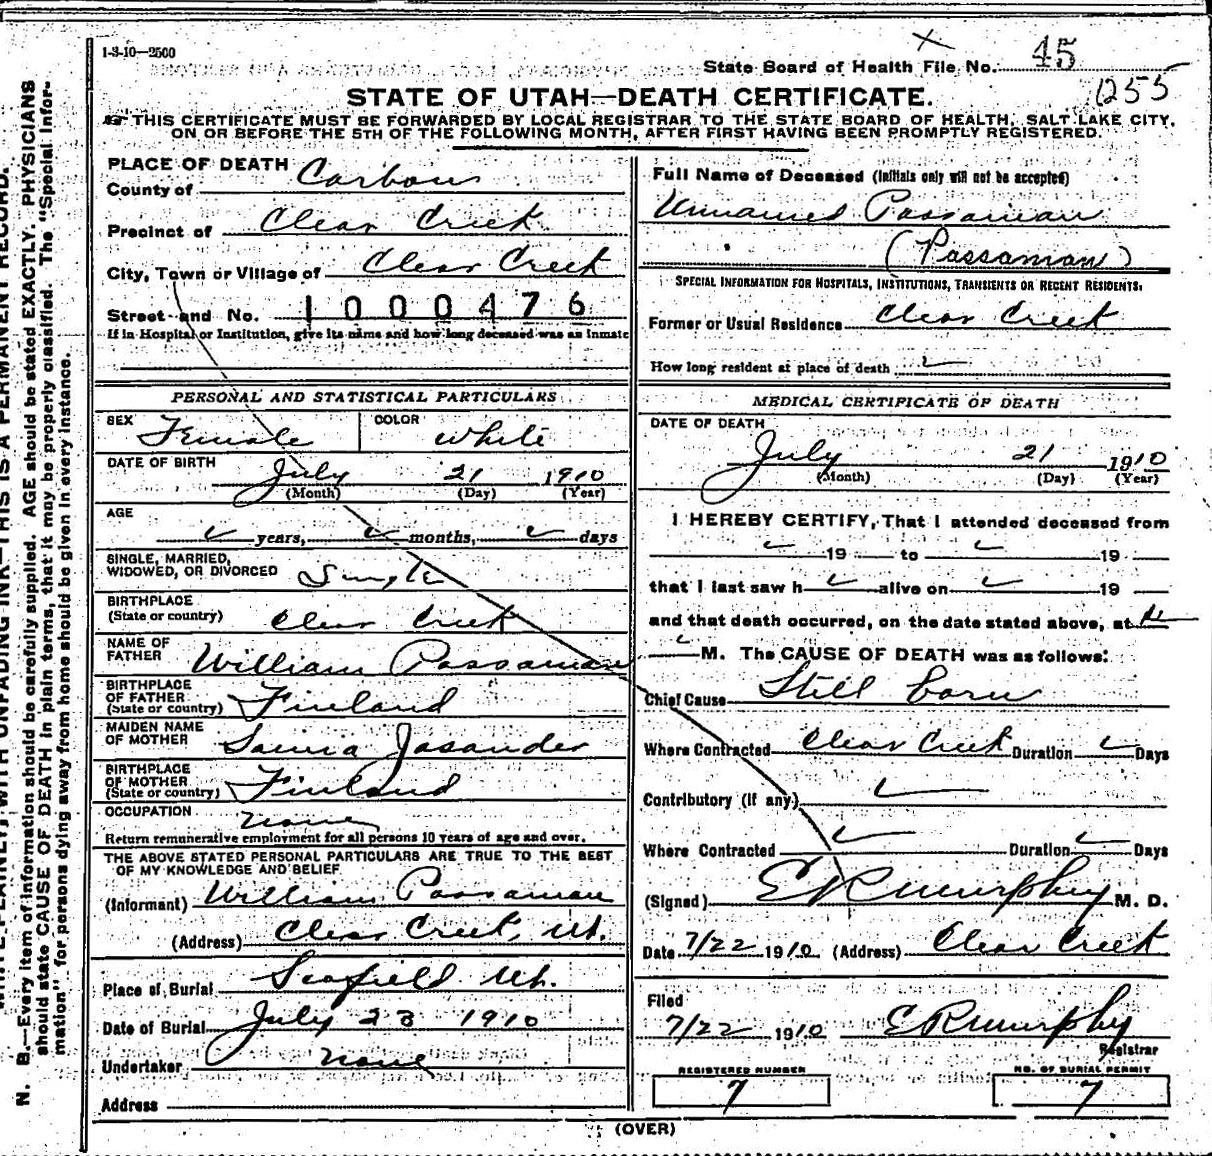 1-3-10—2500
State Board of Health File No. 45
1255
STATE OF UTAH—DEATH CERTIFICATE.
THIS CERTIFICATE MUST BE FORWARDED BY LOCAL REGISTRAR TO THE STATE BOARD OF HEALTH, SALT LAKE CITY,
ON OR BEFORE THE 5TH OF THE FOLLOWING MONTH, AFTER FIRST HAVING BEEN PROMPTLY REGISTERED.
PLACE OF DEATH
County of Carbon
Precinct of Clear Creek
City, Town or Village of Clear Creek
Street and No. 1000476
If in Hospital or Institution, give its name and how long deceased was an inmate
PERSONAL AND STATISTICAL PARTICULARS
SEX Female COLOR White
DATE OF BIRTH July 21 1910
(Month) (Day) (Year)
AGE
years, months, days
SINGLE, MARRIED,
WIDOWED, OR DIVORCED Single
BIRTHPLACE
(State or country) Clear Creek
NAME OF
FATHER William Passaman
BIRTHPLACE
OF FATHER
(State or country) Finland
MAIDEN NAME
OF MOTHER Jasander
BIRTHPLACE
OF MOTHER
(State or country) Finland
OCCUPATION none
Return remunerative employment for all persons 10 years of age and over.
THE ABOVE STATED PERSONAL PARTICULARS ARE TRUE TO THE BEST
OF MY KNOWLEDGE AND BELIEF
(Informant) William Passaman
(Address) Clear Creek, Ut.
Place of Burial Scofield Ut.
Date of Burial July 23 1910
Undertaker none
Address
Full Name of Deceased (Initials only will not be accepted)
Unnamed Passaman
(Passaman)
SPECIAL INFORMATION FOR HOSPITALS, INSTITUTIONS, TRANSIENTS OR RECENT RESIDENTS.
Former or Usual Residence Clear Creek
How long resident at place of death
MEDICAL CERTIFICATE OF DEATH
DATE OF DEATH
July 21 1910
(Month) (Day) (Year)
I HEREBY CERTIFY, That I attended deceased from
19 to 19
that I last saw h alive on 19
and that death occurred, on the date stated above, at
M. The CAUSE OF DEATH was as follows:
Chief Cause Still born
Where Contracted Clear Creek Duration Days
Contributory (if any)
Where Contracted Duration Days
(Signed) E R Murphy M. D.
Date 7/22 1910 (Address) Clear Creek
Filed
7/22 1910 E R Murphy
Registrar
REGISTERED NUMBER
7
NO. OF BURIAL PERMIT
7
(OVER)
N. B.—Every item of information should be carefully supplied. AGE should be stated EXACTLY. PHYSICIANS
should state CAUSE OF DEATH in plain terms, that it may be properly classified. The "Special Infor-
mation" for persons dying away from home should be given in every instance.
WITH UNFADING INK—THIS IS A PERMANENT RECORD.